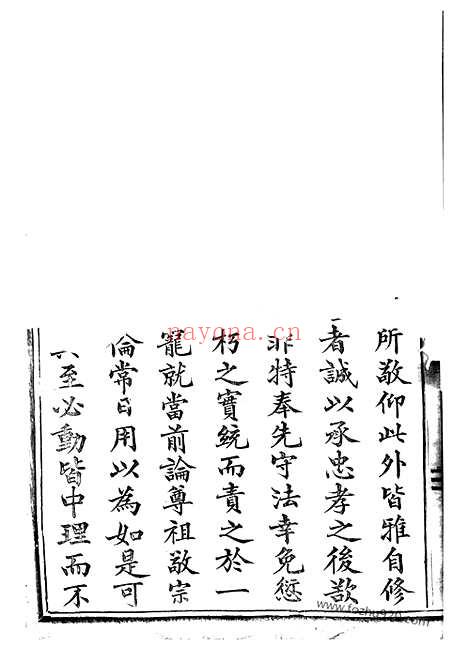 所敬仰此外皆雅自修
者誠以承忠孝之後歘
非特奉先守法幸免愆
朽之實統而責之於一
寵就當前論尊祖敬宗
倫常日用以為如是可
至必動皆中理而不
nayona.cn
www.fozhu920.com